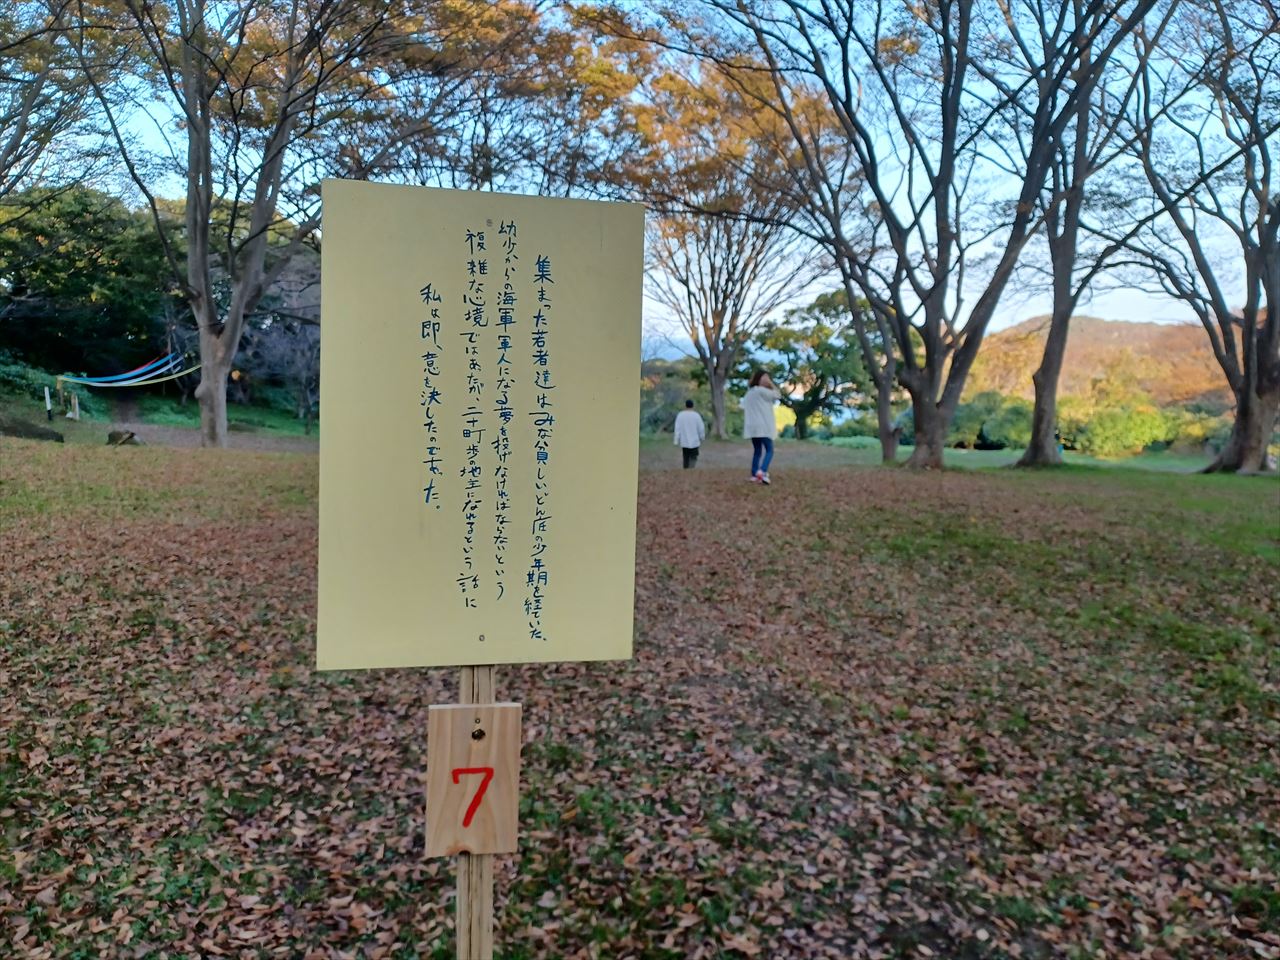 集まった若者達はみな貧しいどん底の少年期を経ていた、
幼少からの海軍軍人になる夢を投げなければならないという
複雑な心境ではあったが、二十町歩の地主になれるという話に
私は即、意を決したのであった。
7